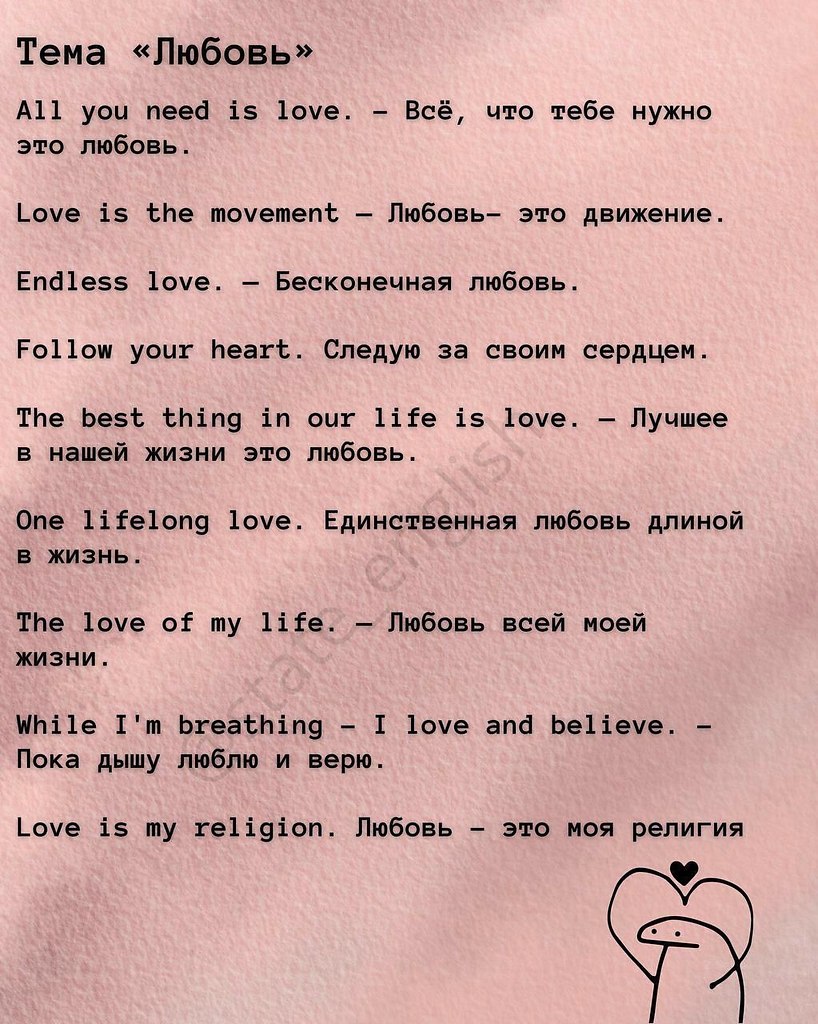 Тема «Любовь»
All you need is love. – Всё, что тебе нужно
это любовь.
Love is the movement – Любовь– это движение.
Endless love. – Бесконечная любовь.
Follow your heart. Следую за своим сердцем.
The best thing in our life is love. – Лучшее
в нашей жизни это любовь.
One lifelong love. Единственная любовь длиной
в жизнь.
The love of my life. – Любовь всей моей
жизни.
While I'm breathing – I love and believe. –
Пока дышу люблю и верю.
Love is my religion. Любовь – это моя религия
@state_english